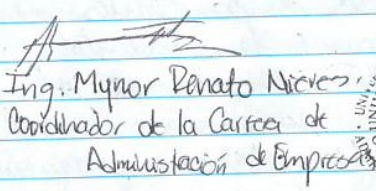 Ing. Mynor Renato Nieves.
Coordinador de la Carrera de
Administración de Empresas